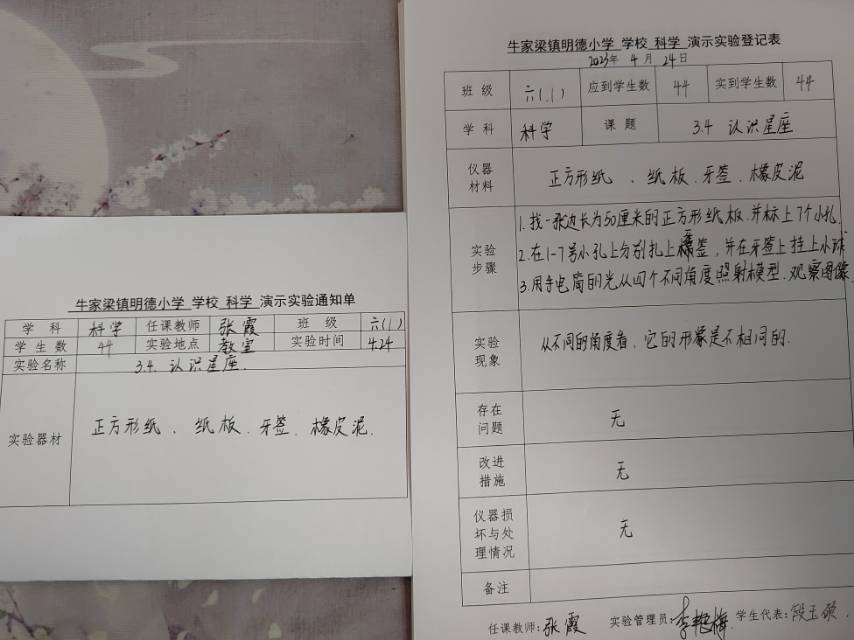 牛家梁镇明德小学 学校 科学 演示实验通知单
学 科 科学 任课教师 张霞 班 级 六(1)
学 生 数 44 实验地点 教室 实验时间 4.24
实验名称 3.4. 认识星座.
实验器材 正方形纸 、纸板、牙签、橡皮泥.
牛家梁镇明德小学 学校 科学 演示实验登记表
2023年 4 月 24日
班 级 六(1) 应到学生数 44 实到学生数 44
学 科 科学 课 题 3.4 认识星座
仪器
材料
正方形纸 、纸板、牙签、橡皮泥
实验
步骤
1.找一张边长为50厘米的正方形纸板.并标上7个小孔
2.在1-7号小孔上分别扎上牙签,并在牙签上挂上小球
3.用手电筒的光从四个不同角度照射模型.观察图像
实验
现象
从不同的角度看,它的形象是不相同的.
存在
问题
无
改进
措施
无
仪器损
坏与处
理情况
无
备注
任课教师:张霞 实验管理员:李艳梅 学生代表:段玉